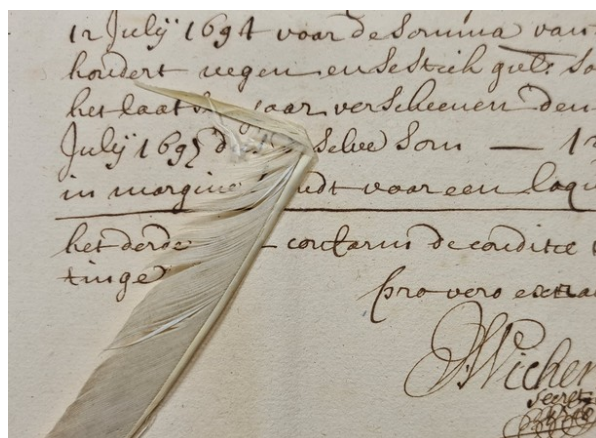 12 Julij 1694 voor de Somma van
hondert negen en sestich gul: so
het laatste jaar verscheenen den
Julij 1695 d selve Som — 12
in margine voor een
het derde contarm de conditie
tinge
pro vero extra
Wicher
Secret